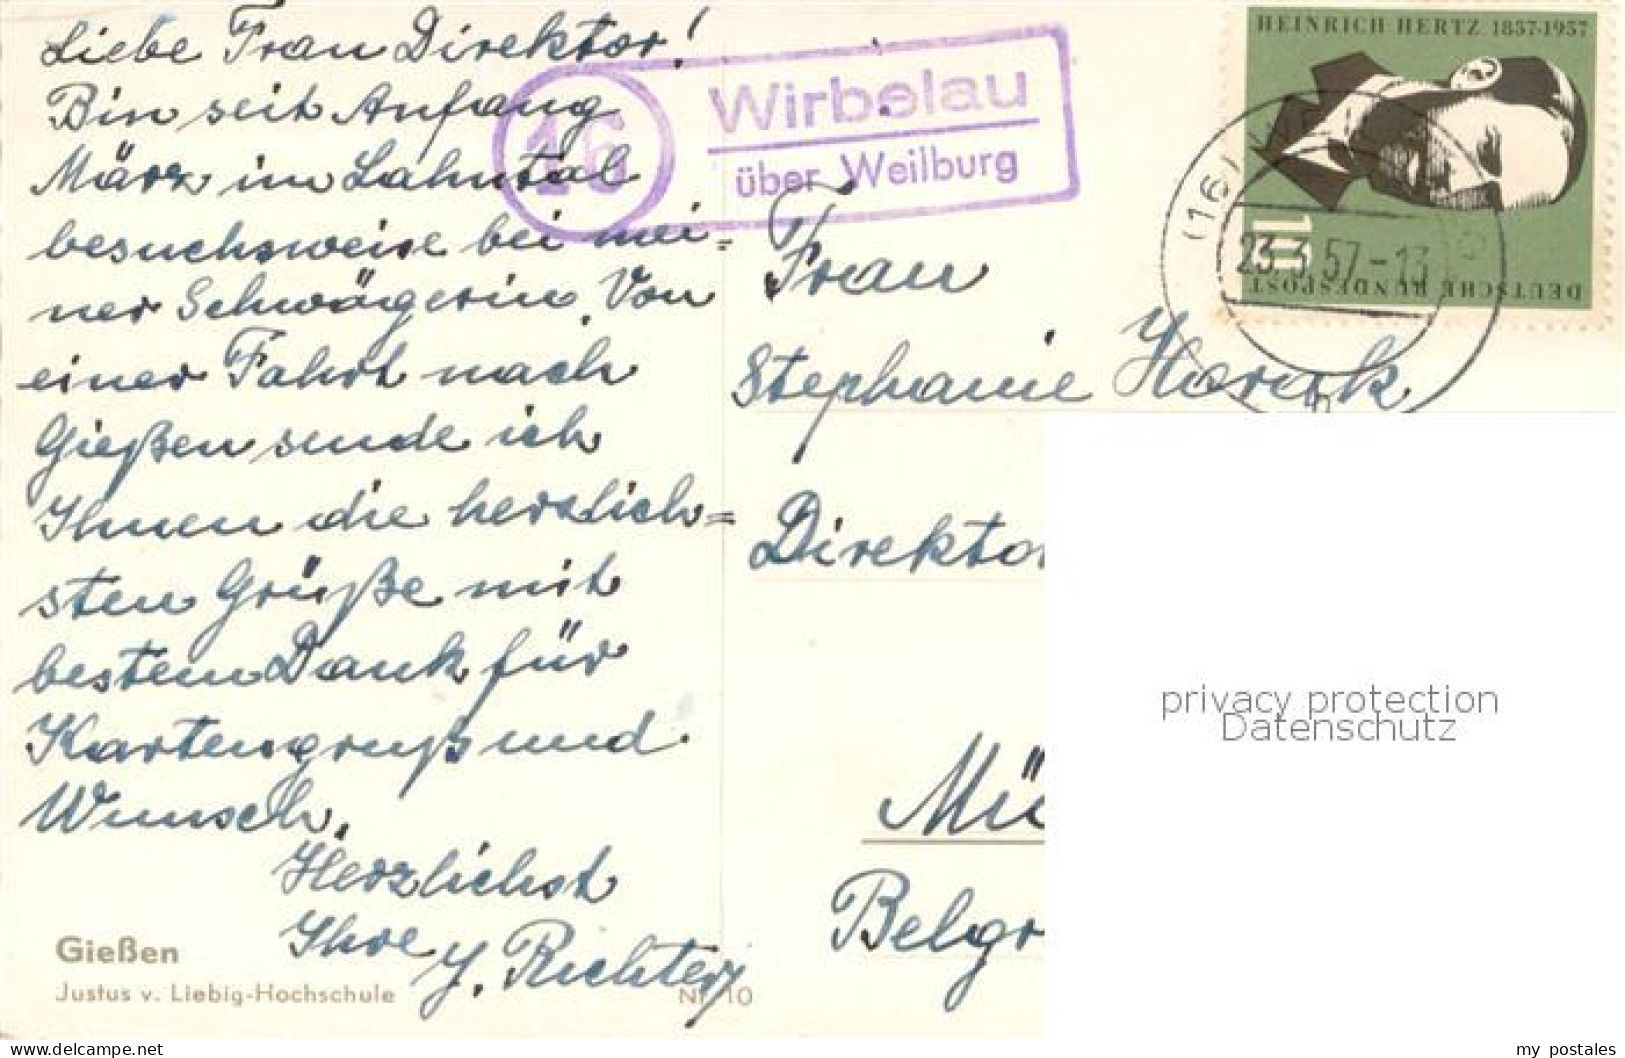 Liebe Frau Direktor!
Bin seit Anfang
März im Lahntal
besuchsweise bei mei=
ner Schwägerin. Von
einer Fahrt nach
Gießen sende ich
Ihnen die herzlich=
sten Grüße mit
bestem Dank für
Kartengruß und
Wunsch.
Herzlichst
Ihre J. Richter
Gießen
Justus v. Liebig-Hochschule
Nr. 10
16
Wirbelau
über Weilburg
HEINRICH HERTZ 1857-1957
10
DEUTSCHE BUNDESPOST
(16)
23.3.57-13
Frau
Stephanie
Direktor
Mü
Belgr
privacy protection
Datenschutz
www.delcampe.net
my_postales